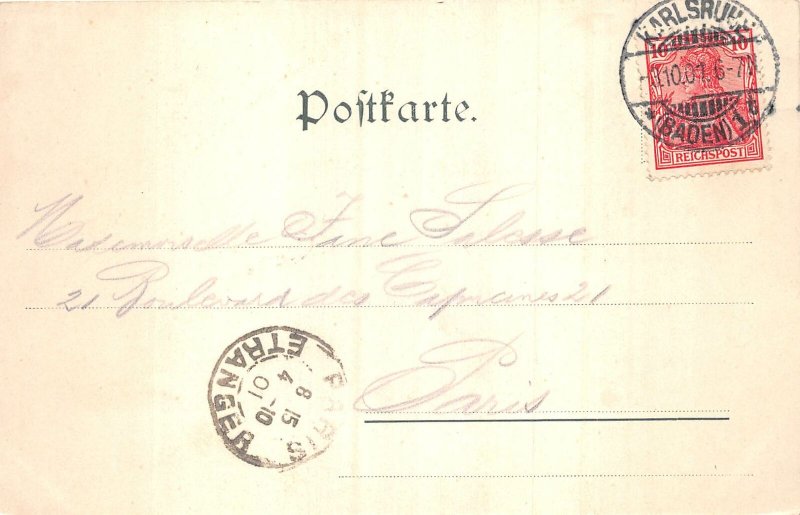 KARLSRUHE
10 10
.10.01. 6-7
(BADEN) 1
REICHSPOST
Postkarte.
Mademoiselle
21 Boulevard des Capucines 21
Paris
PARIS
ETRANGER
8 15
4 -10
01